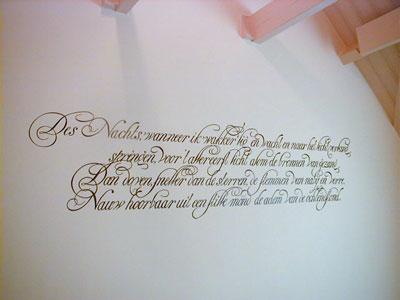 Des Nachts, wanneer ik wakker lig en wacht en naar het licht verlang,
springen, voor 't allereerst licht alom de bronnen van gezang
Dan doven, sneller dan de sterren, de stemmen van nabij en verre.
Nauw hoorbaar uit een stille mond de adem van de